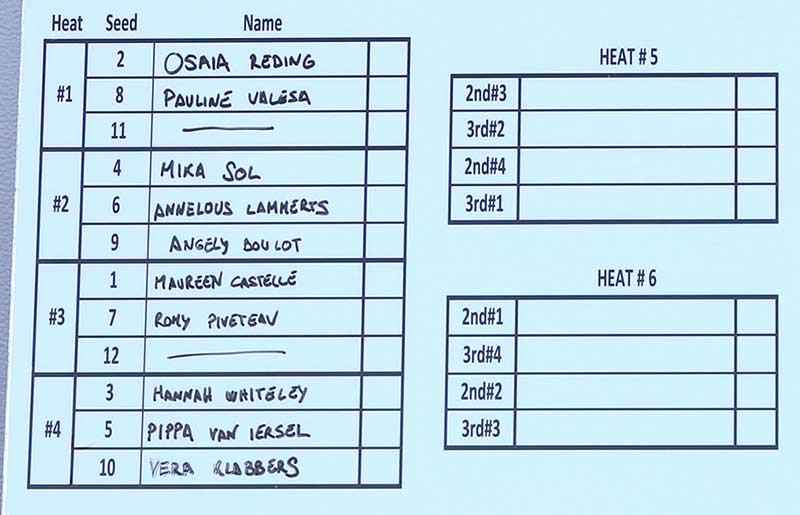 Heat Seed Name
#1
2 OSAIA REDING
8 PAULINE VALESA
11
#2
4 MIKA SOL
6 ANNELOUS LAMMERTS
9 ANGELY BOULOT
#3
1 MAUREEN CASTELLE
7 ROMY PIVETEAU
12
#4
3 HANNAH WHITELEY
5 PIPPA VAN IERSEL
10 VERA KLABBERS
HEAT # 5
2nd#3
3rd#2
2nd#4
3rd#1
HEAT # 6
2nd#1
3rd#4
2nd#2
3rd#3